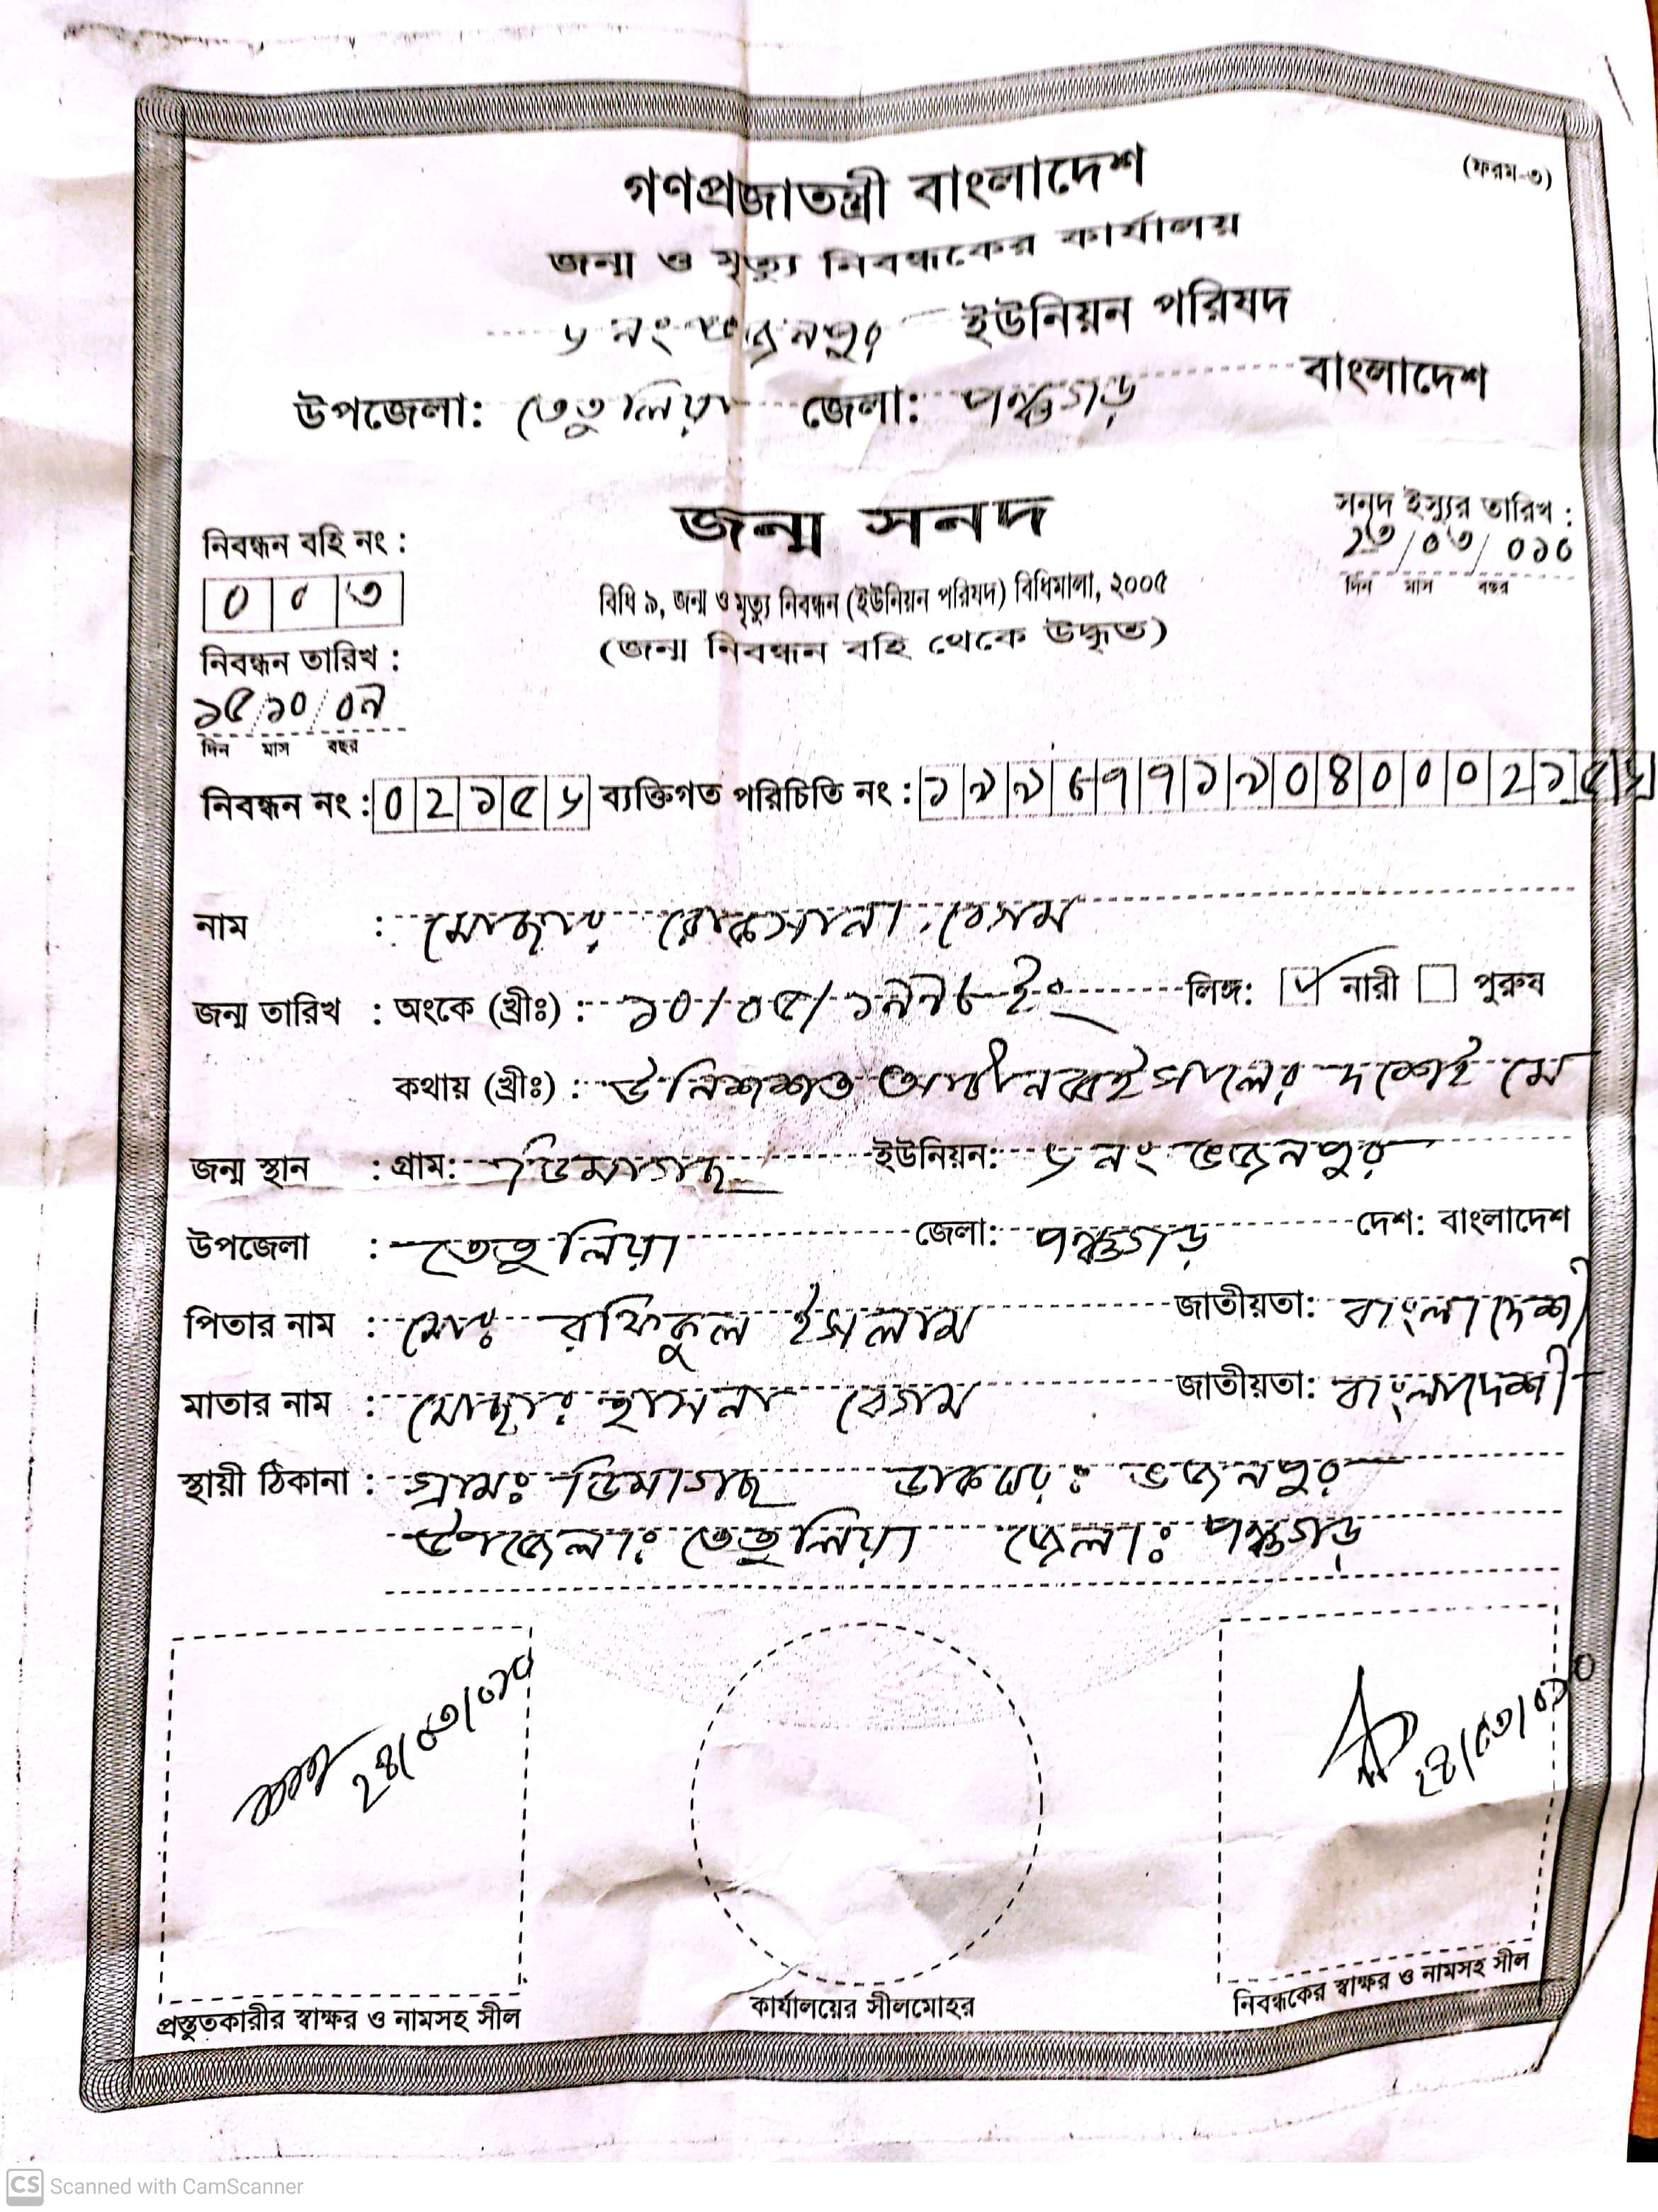 (ফরম-৩)
গণপ্রজাতন্ত্রী বাংলাদেশ
জন্ম ও মৃত্যু নিবন্ধকের কার্যালয়
৬ নং ভজনপুর ইউনিয়ন পরিষদ
উপজেলা: তেতুলিয়া জেলা: পঞ্চগড় বাংলাদেশ
জন্ম সনদ
সনদ ইস্যুর তারিখ :
২৩/০৩/০১০
দিন মাস বছর
নিবন্ধন বহি নং :
০০৩
বিধি ৯, জন্ম ও মৃত্যু নিবন্ধন (ইউনিয়ন পরিষদ) বিধিমালা, ২০০৫
(জন্ম নিবন্ধন বহি থেকে উদ্ধৃত)
নিবন্ধন তারিখ :
১৫/১০/০৭
দিন মাস বছর
নিবন্ধন নং : ০২১৫৬ ব্যক্তিগত পরিচিতি নং : ১৯৯৮৭৭১৯০৪০০০২১৫৬
নাম : মোছাঃ রোকসানা বেগম
জন্ম তারিখ : অংকে (খ্রীঃ) : ১০/০৫/১৯৯৮ ইং লিঙ্গ: নারী পুরুষ
কথায় (খ্রীঃ) : উনিশশত আটানব্বই সালের দশেই মে
জন্ম স্থান : গ্রাম: ডিমাগছ ইউনিয়ন: ৬ নং ভজনপুর
উপজেলা : তেতুলিয়া জেলা: পঞ্চগড় দেশ: বাংলাদেশ
পিতার নাম : মোঃ রফিকুল ইসলাম জাতীয়তা: বাংলাদেশী
মাতার নাম : মোছাঃ হাসনা বেগম জাতীয়তা: বাংলাদেশী
স্থায়ী ঠিকানা : গ্রামঃ ডিমাগছ ডাকঘরঃ ভজনপুর
উপজেলাঃ তেতুলিয়া জেলাঃ পঞ্চগড়
২৪/০৩/০১০
২৪/০৩/০১০
প্রস্তুতকারীর স্বাক্ষর ও নামসহ সীল
কার্যালয়ের সীলমোহর
নিবন্ধকের স্বাক্ষর ও নামসহ সীল
CS Scanned with CamScanner